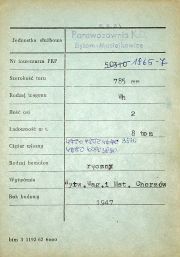 Jednostka służbowa
Parowozownia K.D.
Bytom-Maciejkowice
Nr inwentarza PKP 50310 1965-7
Szerokość toru 785 mm
Rodzaj wagonu Wh
Ilość osi 2
Ładowność w t. 8 ton
Ciężar własny
Rodzaj hamulca ręczny
Wytwórnia Wytw. Wag. i Mst. Chorzów
Rok budowy 1947